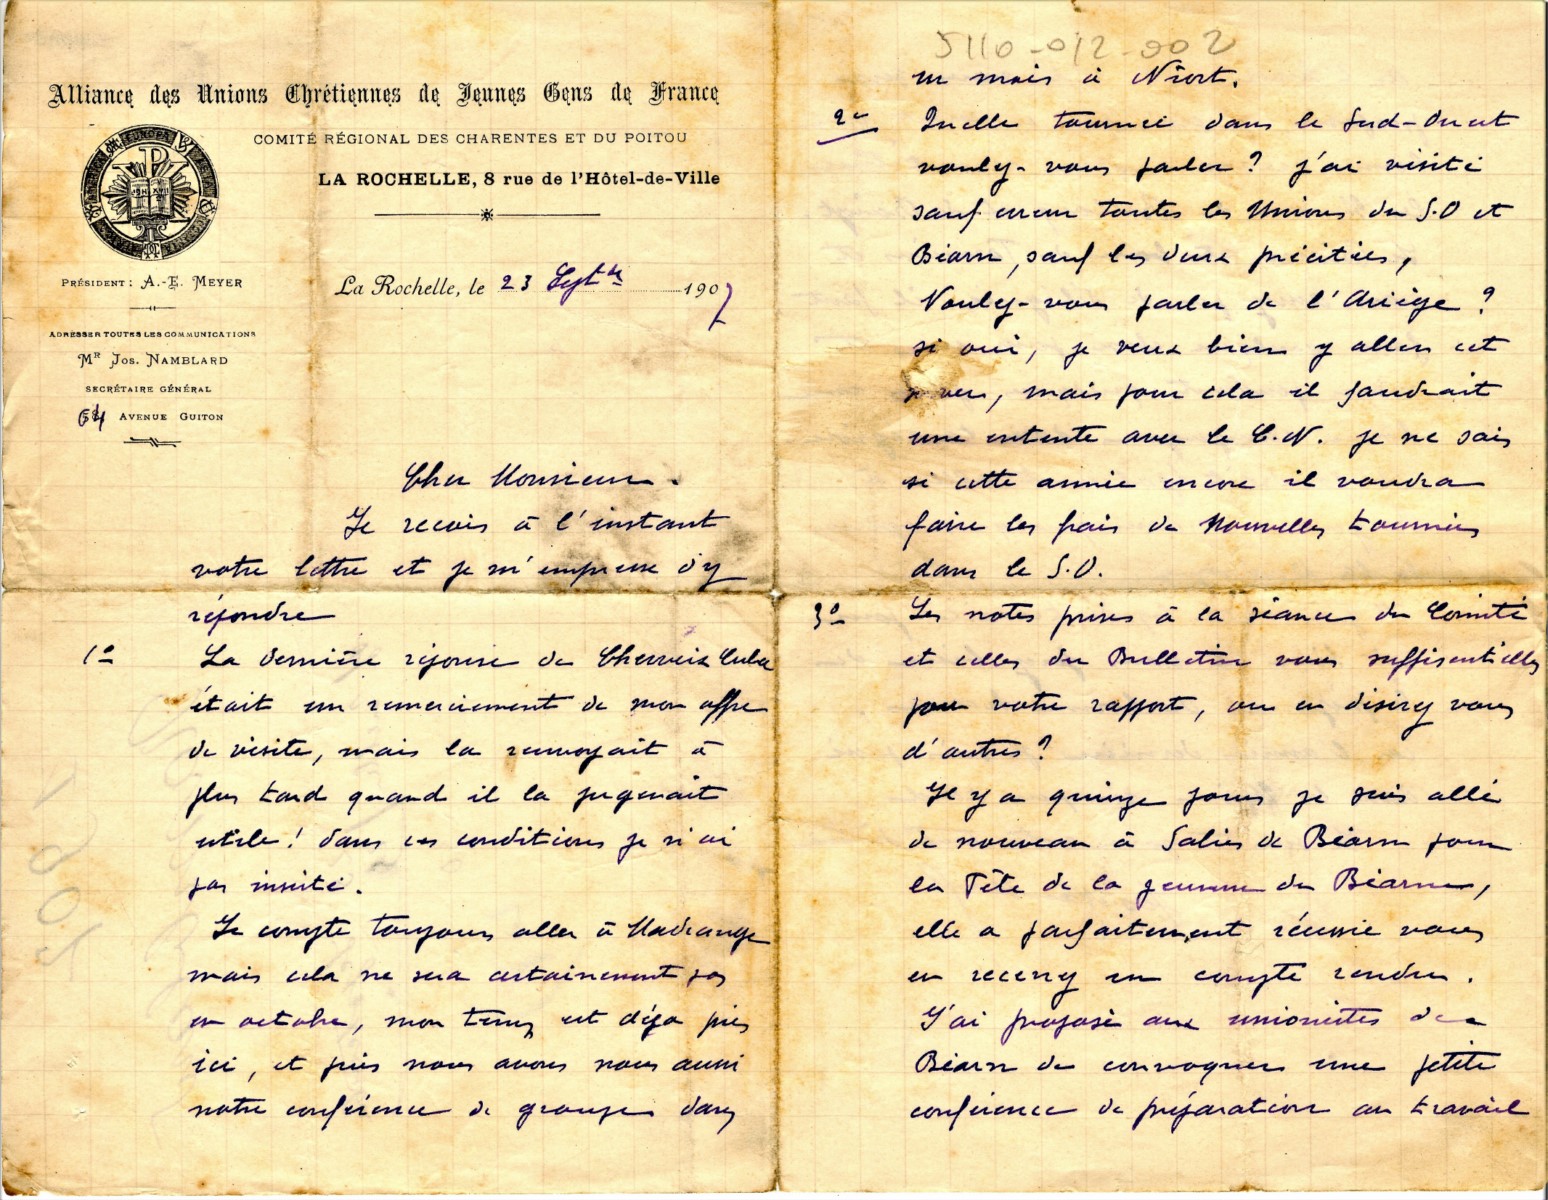 Alliance des Unions Chrétiennes de Jeunes Gens de France
COMITÉ RÉGIONAL DES CHARENTES ET DU POITOU
LA ROCHELLE, 8 rue de l'Hôtel-de-Ville
EUROPA
PRÉSIDENT : A.-E. MEYER
ADRESSER TOUTES LES COMMUNICATIONS
Mr JOS. NAMBLARD
SECRÉTAIRE GÉNÉRAL
64 AVENUE GUITON
La Rochelle, le 23 Septbre 1907
Cher Monsieur.
Je reçois à l'instant
votre lettre et je m'empresse d'y
répondre
1o La dernière réponse de Cherveix Cubas
était un remerciement de mon offre
de visite, mais la renvoyait à
plus tard quand il la jugerait
utile! dans ces conditions je n'ai
pas insisté.
Je compte toujours aller à Madranges
mais cela ne sera certainement pas
en octobre, mon temps est déjà pris
ici, et puis nous avons nous aussi
notre conférence de groupes dans
5110-012-002
un mois à Niort.
2o Quelle tournée dans le Sud-Ouest
voulez-vous parler? j'ai visité
sauf erreur toutes les Unions du S.O et
Béarn, sauf les deux précitées,
Voulez-vous parler de l'Ariège?
si oui, je veux bien y aller cet
mais pour cela il faudrait
une entente avec le C.N. je ne sais
si cette année encore il voudra
faire les frais de nouvelles tournées
dans le S.O.
3o Les notes prises à la séance du Comité
et celles du Bulletin vous suffisent-elles
pour votre rapport, ou en désirez vous
d'autres?
Il y a quinze jours je suis allé
de nouveau à Salies de Béarn pour
la Fête de la jeunesse du Béarn,
elle a parfaitement réussie vous
en recevez un compte rendu.
J'ai proposé aux unionistes de
Béarn de convoquer une petite
conférence de préparation au travail